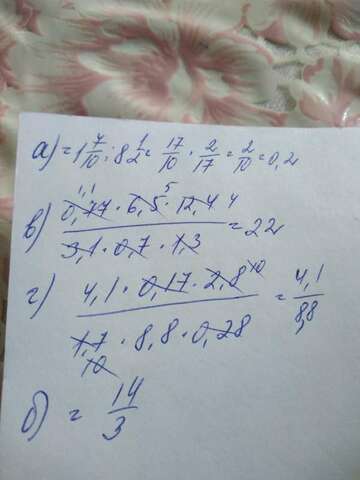 а) = 1 7/10 : 8 1/2 = 17/10 · 2/17 = 2/10 = 0,2
1,1 5
в) 0,77 · 6,5 · 12,4 4 / 3,1 · 0,7 · 1,3 = 22
г) 4,1 · 0,17 · 2,8 10 / 1,7 · 8,8 · 0,28 = 4,1 / 8,8
10
б) = 14/3